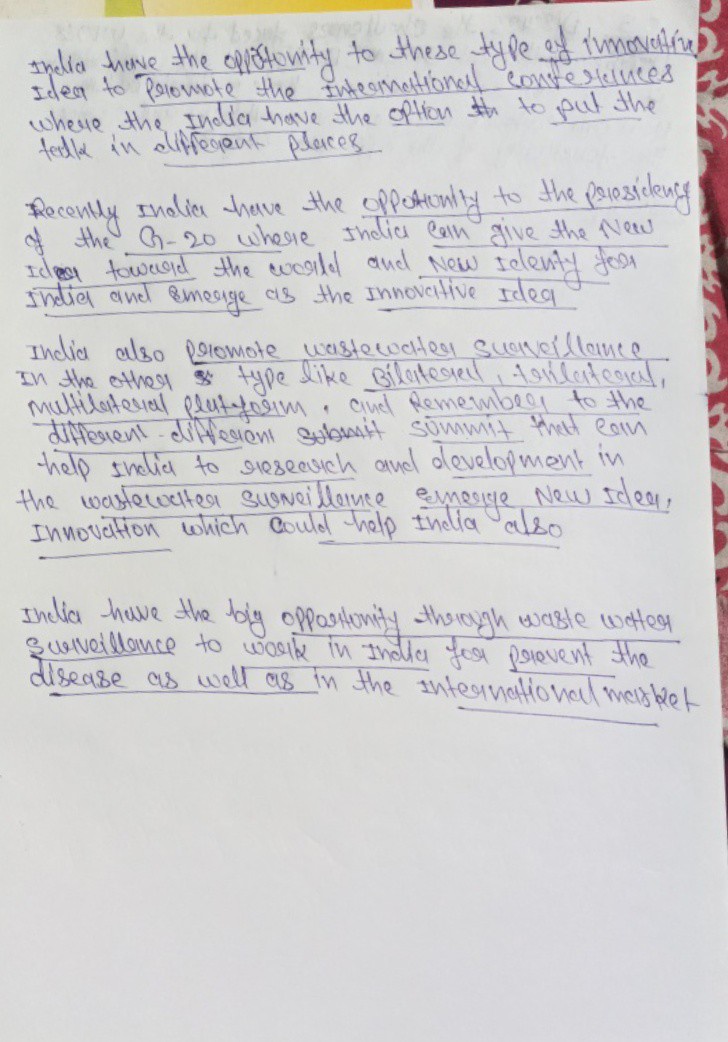 India have the oppotunity to these type of innovative
Idea to promote the International conferences
where the India have the option to put the
talk in different places
Recently India have the oppotunity to the presidency
of the G-20 where India can give the New
Idea toward the world and New Identy for
India and Emerge as the Innovative Idea
India also promote wastewater surveillance
In the other type like Bilateral, trilateral,
multilateral platform, and Remember to the
different-different submit summit that can
help India to research and development in
the wastewater surveillance Emerge New Idea,
Innovation which could help India also
India have the big oppotunity through waste water
surveillance to work in India for prevent the
disease as well as in the International market